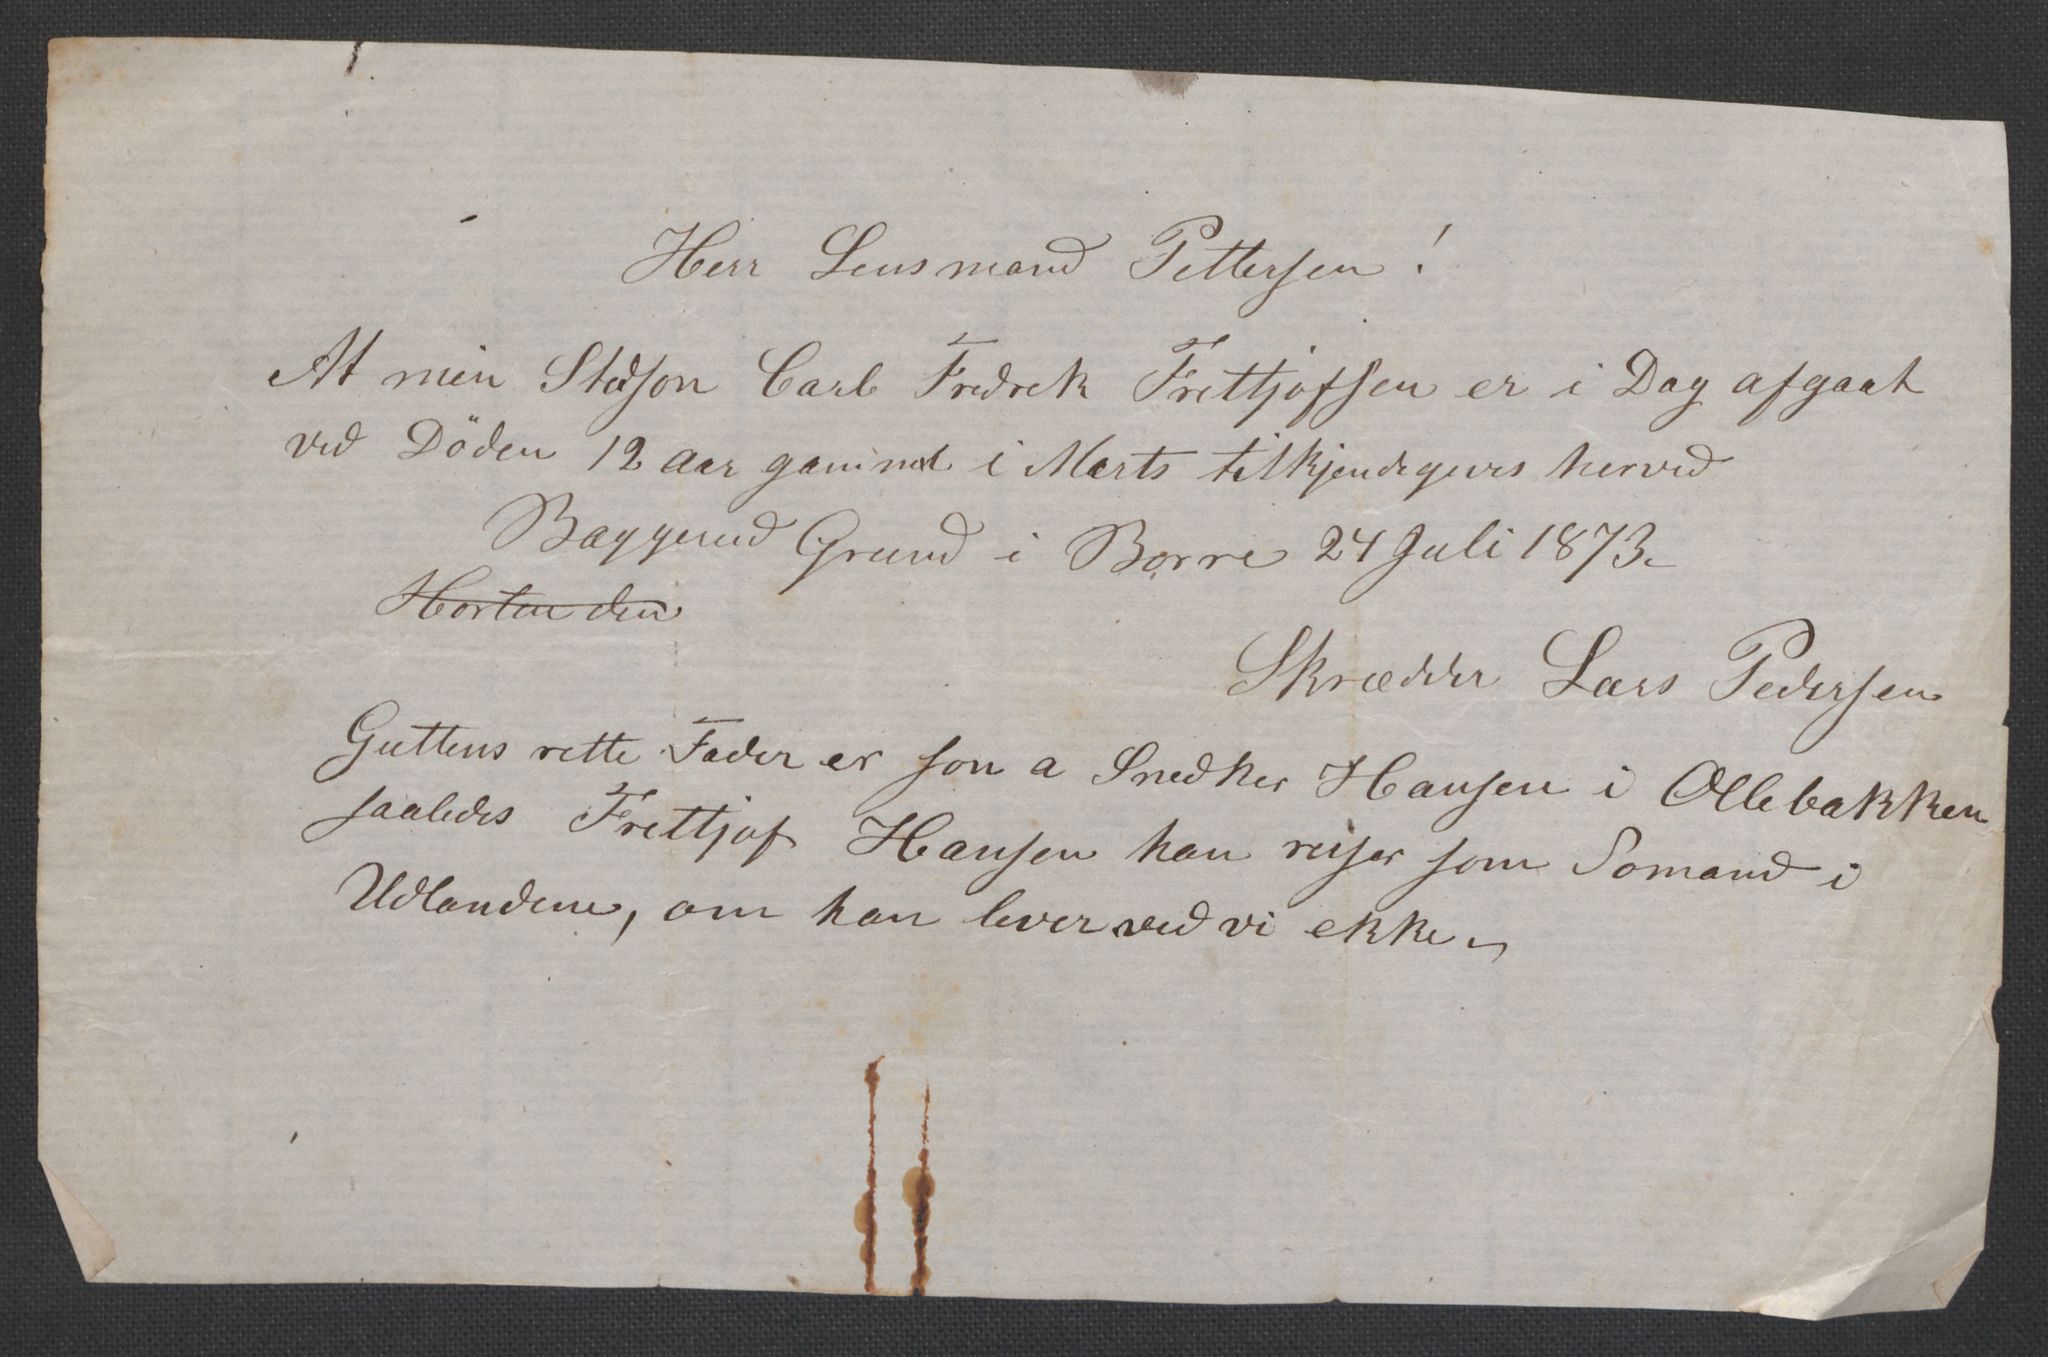 Herr Lensmand Pettersen!
At min Stedson Carl Fredrek Frettjofsen er i Dag afgaat
ved Döden 12 aar gammel i Marts tilkjendegives herved
Baggerud Grund i Borre 24 Juli 1873.
Horten den
Skrædder Lars Pedersen
Guttens rette Fader er son a Snedker Hansen i Ollebakken
saaledes Frettjof Hansen han reiser som Somand i
Udlandene, om han lever ved vi ekke